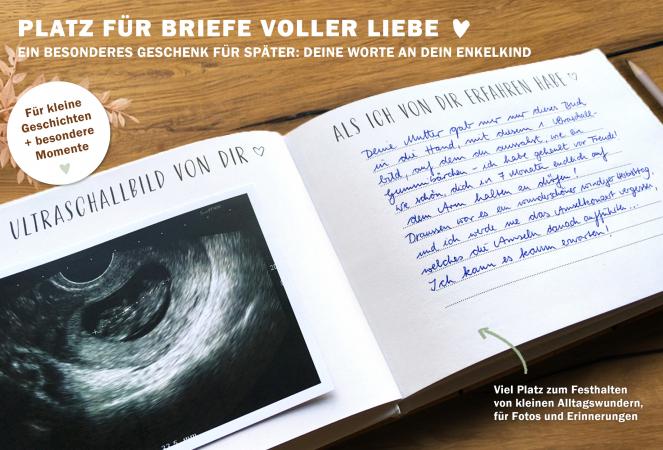 PLATZ FÜR BRIEFE VOLLER LIEBE
EIN BESONDERES GESCHENK FÜR SPÄTER: DEINE WORTE AN DEIN ENKELKIND
Für kleine
Geschichten
+ besondere
Momente
ULTRASCHALLBILD VON DIR
ALS ICH VON DIR ERFAHREN HABE
Deine Mutter gab mir nur dieses Buch
in die Hand, mit diesem 1. Ultraschall-
bild, auf dem du aussahst, wie ein
Gummibärchen - ich habe geheult vor Freude!
Wie schön, dich in 7 Monaten endlich auf
dem Arm halten zu dürfen!
Draussen war es ein wunderschöner windiger Herbsttag,
und ich werde nie das Amselkonzert vergessen,
welches die Amseln danach aufführten...
Ich kann es kaum erwarten!
Viel Platz zum Festhalten
von kleinen Alltagswundern,
für Fotos und Erinnerungen